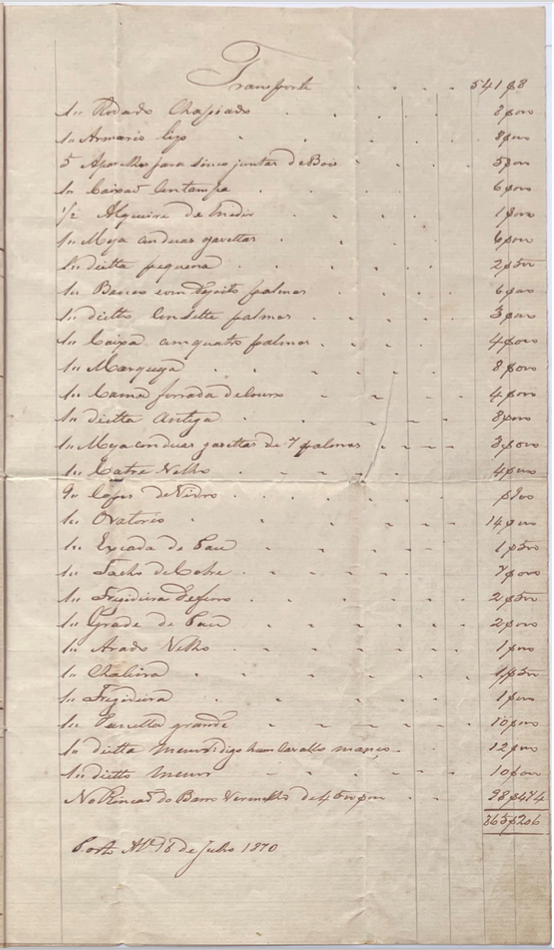 Transporte 541$8
1" Rodado Chapiado 8$000
1" Armario lizo 8$000
5 Aparelhos para sinco juntas de Bois 5$000
1" Caixaõ sem tampa 6$000
1/2 Alqueire de medir 1$000
1" Meza com duas gavettas 6$000
1" dietta pequena 2$500
1" Banco com depozito palmos 6$000
1" dietto Com sette palmos 3$000
1" Caixa com quatro palmos 4$000
1" Marqueza 8$000
1" Cama forrada de couro 4$000
1" dietta Antiga 8$000
1" Meza com duas gavettas de 7 palmos 3$000
1" Catre Velho 4$000
9" Copos de Vidro
1" Oratorio 14$000
1" Escada de Pau 1$500
1" Tacho de Cobre 7$000
1" Frigideira de ferro 2$500
1" Grade de Pau 2$000
1" Arado Velho 1$000
1" Chaleira 1$500
1" Frigideira 1$000
1" Panella grande 10$000
1" dietta menor digo hum Cavallo manço 12$000
1" dietto menor 10$000
No Rincaõ do Barro Vermelho de 98$474
765$206
Porto de Julho 1870